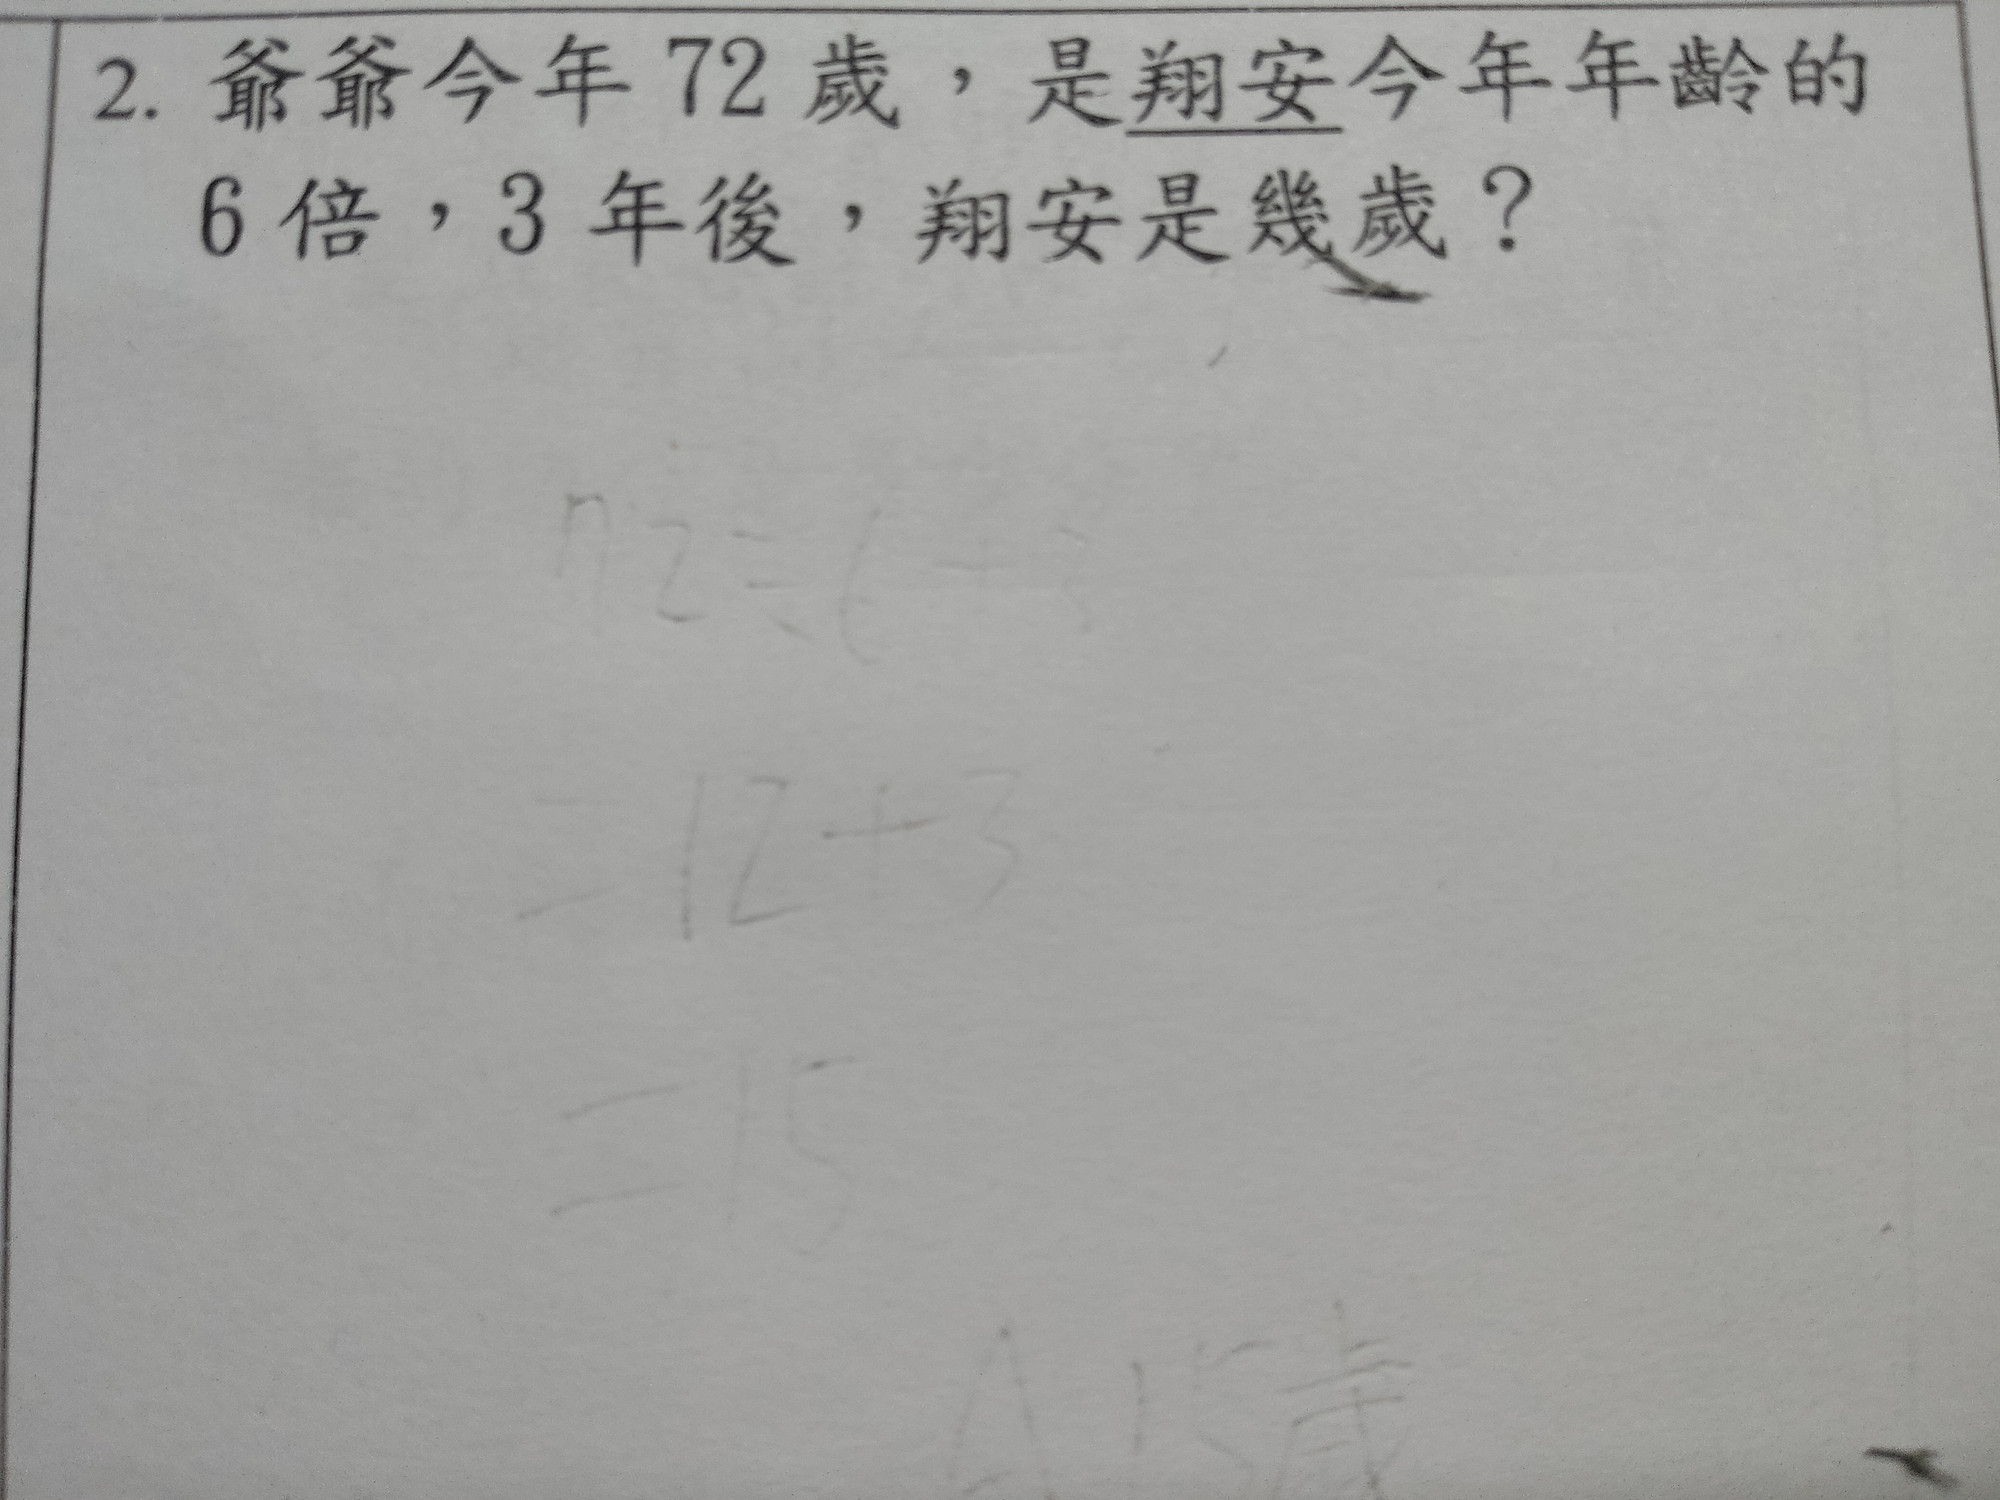 2. 爺爺今年 72 歲，是翔安今年年齡的
6 倍，3 年後，翔安是幾歲？
72÷6+3
=12+3
=15
A:15歲